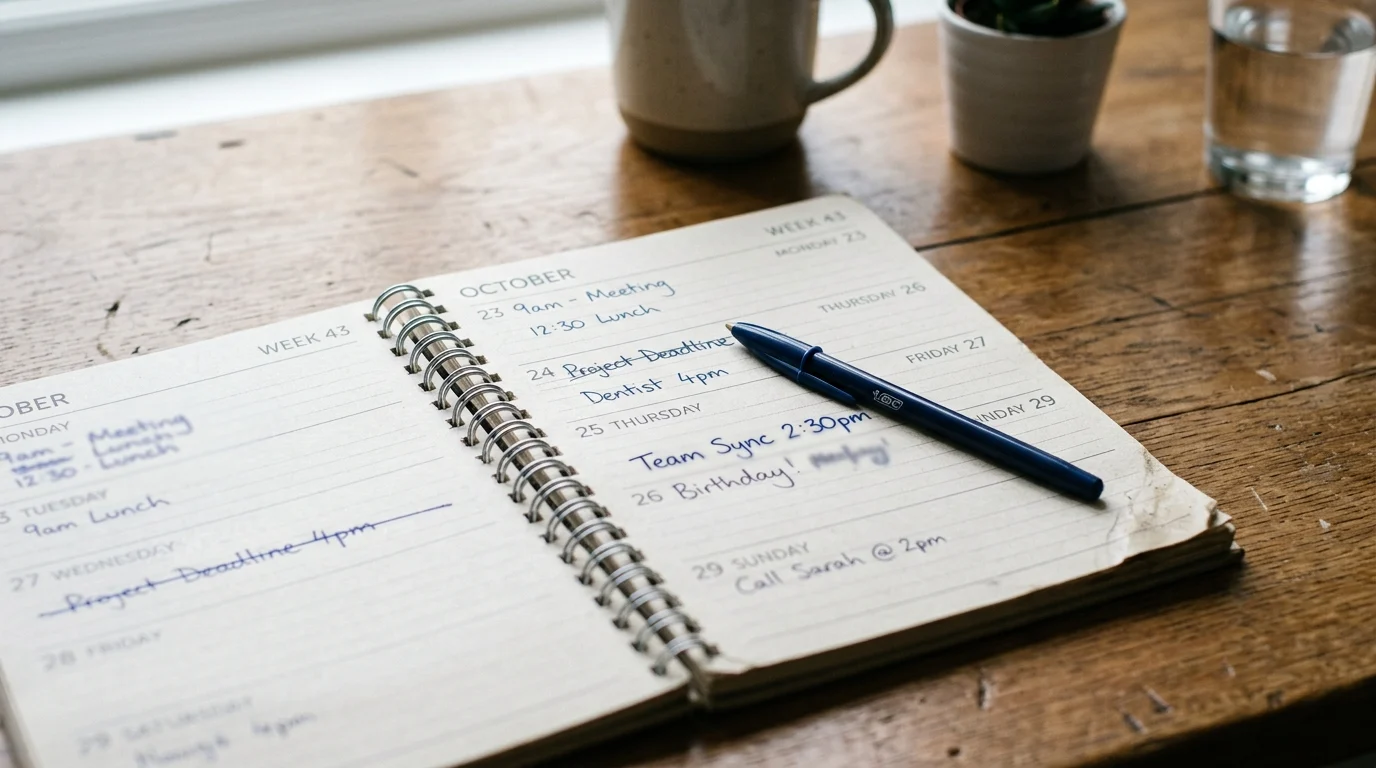 OBER
WEEK 43
MONDAY
9am - Meeting
Lunch
12:30 - Lunch
TUESDAY
9am Lunch
27 WEDNESDAY
Project Deadline 4pm
28 FRIDAY
29 SATURDAY
OCTOBER
WEEK 43
MONDAY 23
23 9am - Meeting
12:30 Lunch
THURSDAY 26
24 Project Deadline
Dentist 4pm
FRIDAY 27
25 THURSDAY
29
Team Sync 2:30pm
26 Birthday!
29 SUNDAY
Call Sarah @ 2pm